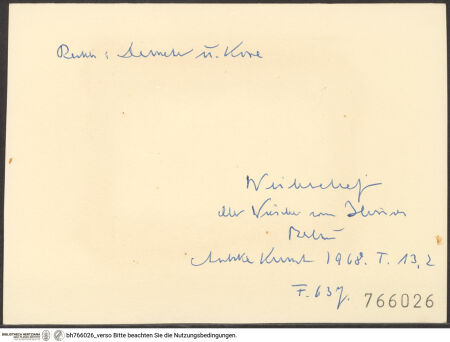 Rechts: Demeter u. Kore
Weihrelief
der Wäscher vom Ilissos
Berlin
Antike Kunst 1968. T. 13,2
F. 637. 766026
BIBLIOTHECA HERTZIANA bh766026_verso Bitte beachten Sie die Nutzungsbedingungen.